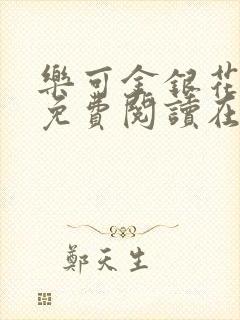 樂可金銀花
免費閱讀在
鄭天生